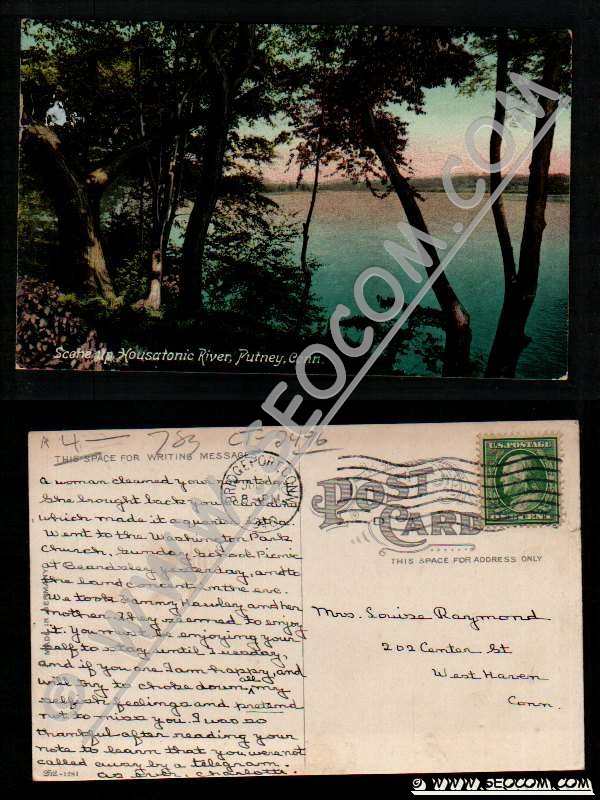 Scene Up Housatonic River, Putney, Conn.
© WWW.SEOCOM.COM
4— 783 CT-2496
THIS SPACE FOR WRITING MESSAGES
BRIDGEPORT, CONN.
8 PM
U.S. POSTAGE
POST CARD
THIS SPACE FOR ADDRESS ONLY
A woman cleaned your
She brought back you
which made it
Went to the Washington Park
Church, Sunday School Picnic
at Beardsley yesterday, and to
the band in the eve.
We took Hawley and her
mother. They seemed to enjoy
it. You must be enjoying your
self to stay until Tuesday,
and if you are I am happy, and
will try to choke down all my
selfish feelings and pretend
not to miss you. I was so
thankful after reading your
note to learn that you were not
called away by a telegram.
As ever, Charlotte.
Mrs. Louise Raymond
202 Center St
West Haven
Conn.
MADE IN GERMANY
© WWW.SEOCOM.COM
© WWW.SEOCOM.COM